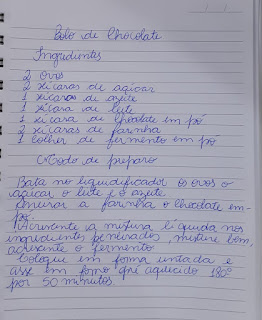 Bolo de Chocolate
Ingredientes
2 ovos
2 xícaras de açúcar
1 xícaras de azeite
1 xícara de leite
1 xícara de chocolate em pó
2 xícaras de farinha
1 colher de fermento em pó
Modo de preparo
Bata no liquidificador os ovos o
açúcar o leite e o azeite
Penerar a farinha o chocolate em
pó.
Acrescente a mistura líquida nos
ingredientes penerados, misture bem,
acrescente o fermento
Coloque em forma untada e
asse em forno pré aquecido 180°
por 50 minutos